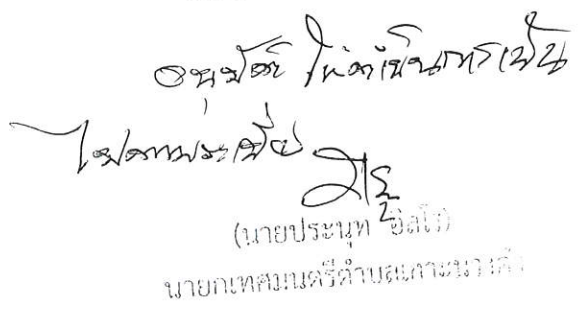 อนุมัติ ให้ดำเนินการเป็น
ไปตามระเบียบ
(นายประนุท
นายกเทศมนตรีตำบลเกาะนางคำ